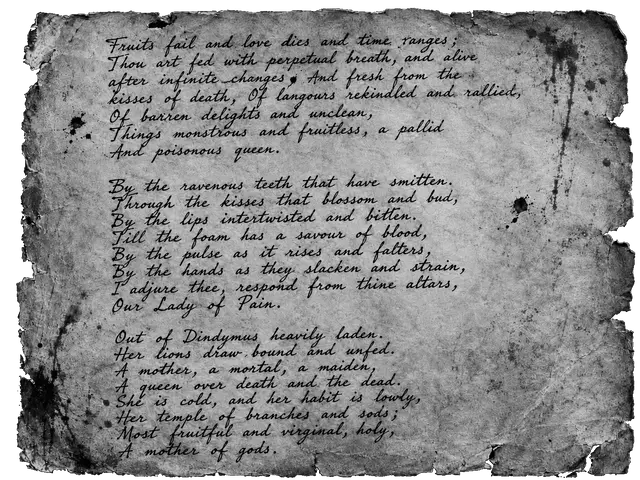 Fruits fail and love dies and time ranges;
Thou art fed with perpetual breath, and alive
after infinite changes, And fresh from the
kisses of death, Of langours rekindled and rallied,
Of barren delights and unclean,
Things monstrous and fruitless, a pallid
And poisonous queen.

By the ravenous teeth that have smitten.
Through the kisses that blossom and bud,
By the lips intertwisted and bitten.
Till the foam has a savour of blood,
By the pulse as it rises and falters,
By the hands as they slacken and strain,
I adjure thee, respond from thine altars,
Our Lady of Pain.

Out of Dindymus heavily laden.
Her lions draw bound and unfed.
A mother, a mortal, a maiden,
A queen over death and the dead.
She is cold, and her habit is lowly,
Her temple of branches and sods;
Most fruitful and virginal, holy,
A mother of gods.